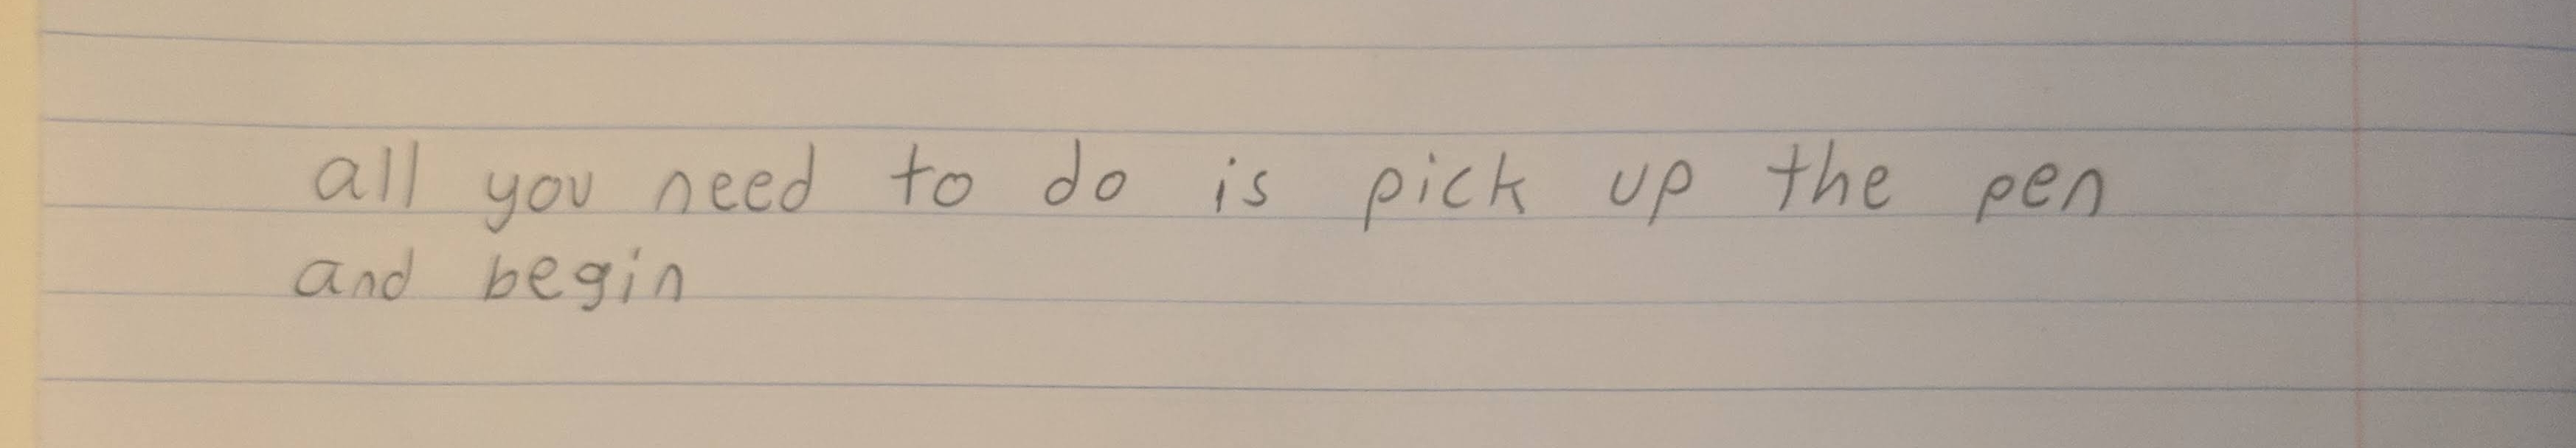 all you need to do is pick up the pen
and begin